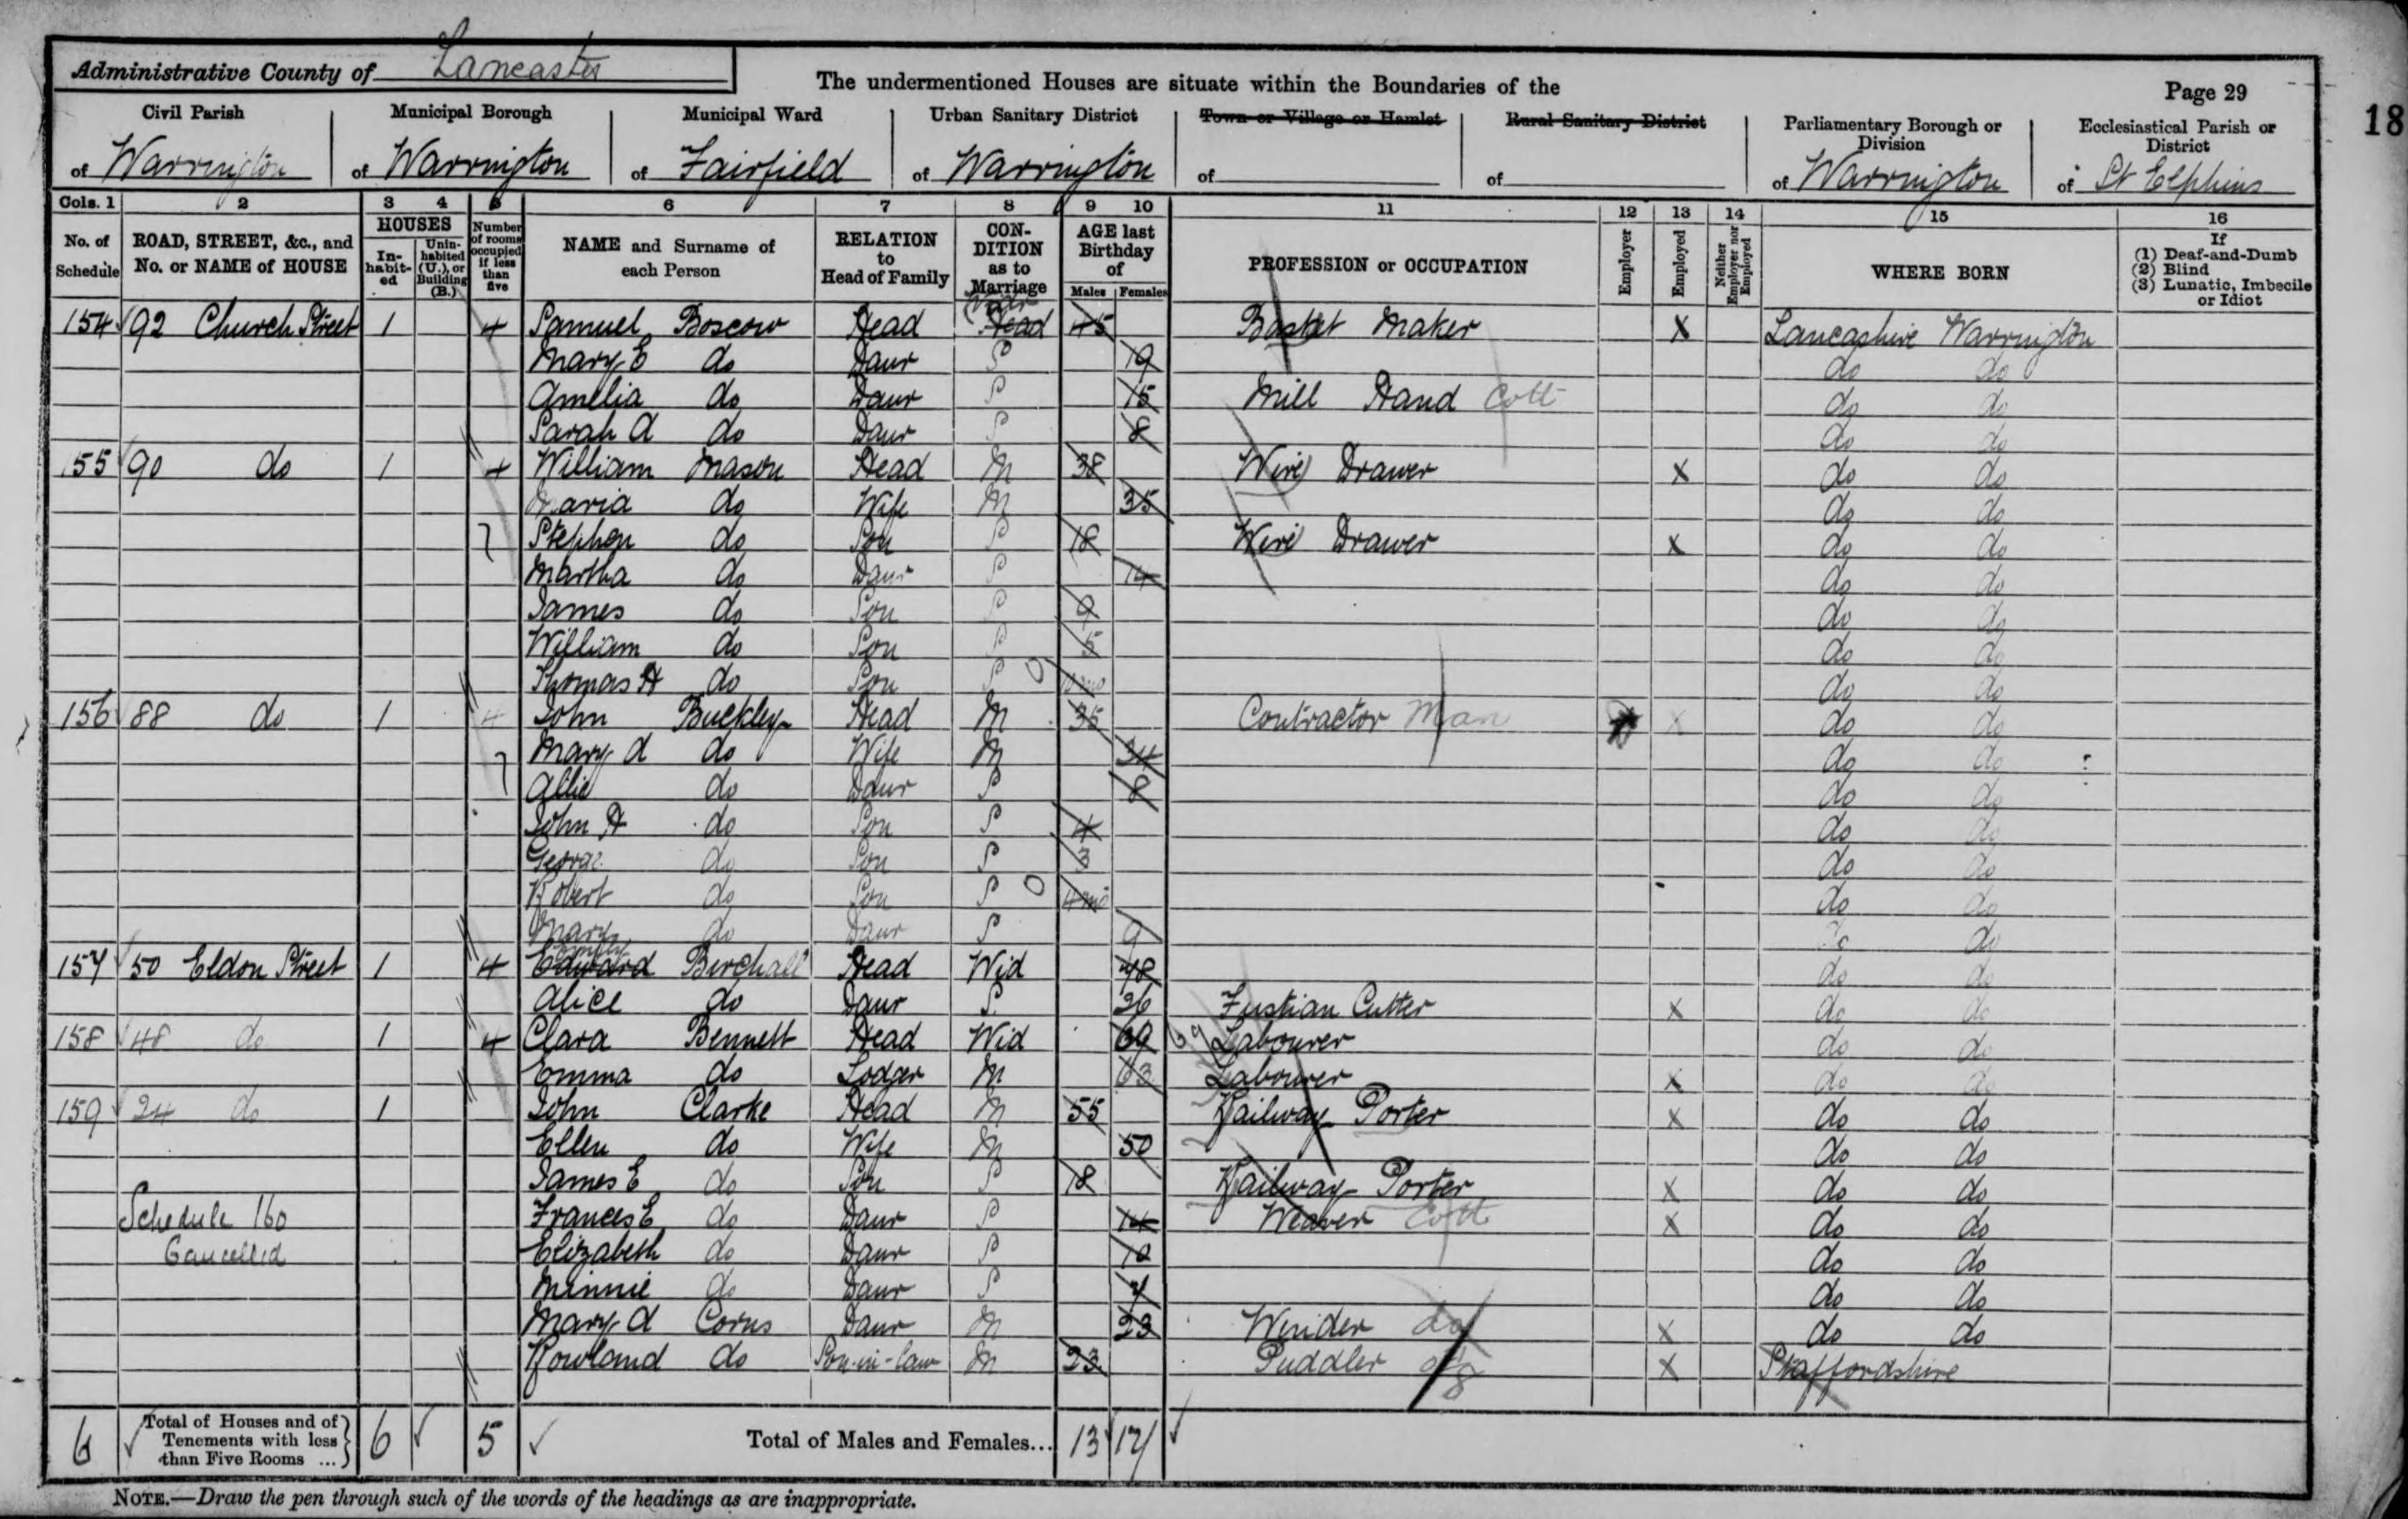 Administrative County of Lancaster
The undermentioned Houses are situate within the Boundaries of the
Page 29
18
Civil Parish Municipal Borough Municipal Ward Urban Sanitary District Town or Village or Hamlet Rural Sanitary District Parliamentary Borough or Division Ecclesiastical Parish or District
of Warrington of Warrington of Fairfield of Warrington of of of Warrington of St Elphins
Cols. 1 2 3 4 5 6 7 8 9 10 11 12 13 14 15 16
No. of Schedule ROAD, STREET, &c., and No. or NAME of HOUSE HOUSES Inhabited Uninhabited (U.), or Building (B.) Number of rooms occupied if less than five NAME and Surname of each Person RELATION to Head of Family CONDITION as to Marriage AGE last Birthday of Males Females PROFESSION or OCCUPATION Employer Employed Neither Employer nor Employed WHERE BORN If (1) Deaf-and-Dumb (2) Blind (3) Lunatic, Imbecile or Idiot
154 92 Church Street 1 4 Samuel Boscow Head Widr Head 45 Basket Maker X Lancashire Warrington
Mary E do Daur S 19 do do
Amelia do Daur S 15 Mill Hand Cott do do
Sarah A do Daur S 8 do do
155 90 do 1 4 William Mason Head M 38 Wire Drawer X do do
Maria do Wife M 35 do do
7 Stephen do Son S 18 Wire Drawer X do do
Martha do Daur S 14 do do
James do Son S 9 do do
William do Son S 5 do do
Thomas H do Son S 0 do do
156 88 do 1 4 John Buckley Head M 35 Contractor Man X do do
7 Mary A do Wife M 34 do do
Allie do Daur S 8 do do
John H do Son S 4 do do
George do Son S 3 do do
Robert do Son S 0 4mo do do
Mary do Daur S 9 do do
157 50 Eldon Street 1 4 Edward Birchall Head Wid 48 do do
Alice do Daur S. 26 Fustian Cutter X do do
158 48 do 1 4 Clara Bennett Head Wid 69 69 Labourer do do
Emma do Lodger M 63 Labourer X do do
159 24 do 1 John Clarke Head M 55 Railway Porter X do do
Ellen do Wife M 50 do do
James E do Son S 18 Railway Porter X do do
Schedule 160 Frances E do Daur S 14 Weaver Cott X do do
Cancelled Elizabeth do Daur S 10 do do
Minnie do Daur S 7 do do
Mary A Corns Daur M 23 Winder do X do do
Rowland do Son-in-law M 23 Puddler X Staffordshire
6 Total of Houses and of Tenements with less than Five Rooms ... 6 5 Total of Males and Females... 13 17
NOTE.—Draw the pen through such of the words of the headings as are inappropriate.